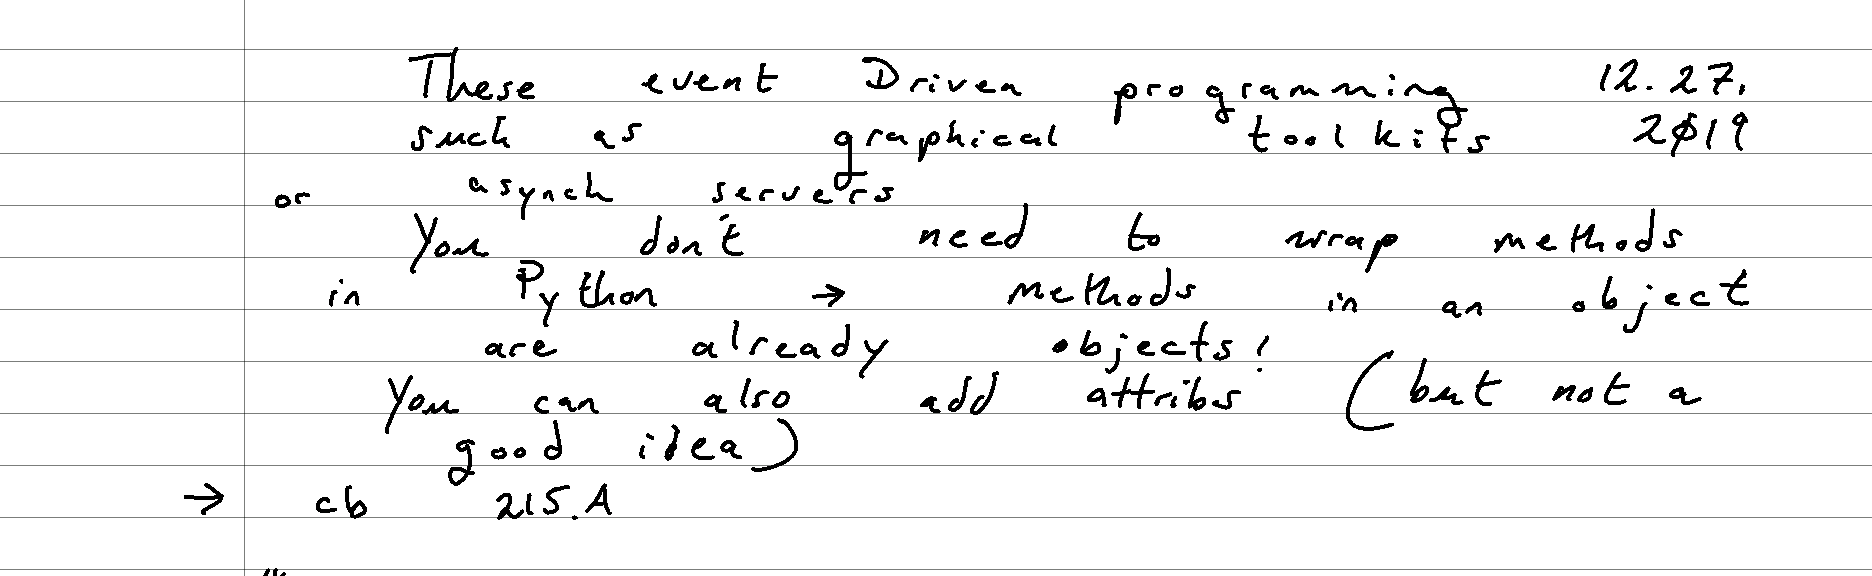 These event Driven programming 12.27.
such as graphical toolkits 2019
or asynch servers
You don't need to wrap methods
in Python → methods in an object
are already objects!
You can also add attribs (but not a
good idea)
→ cb 215.A